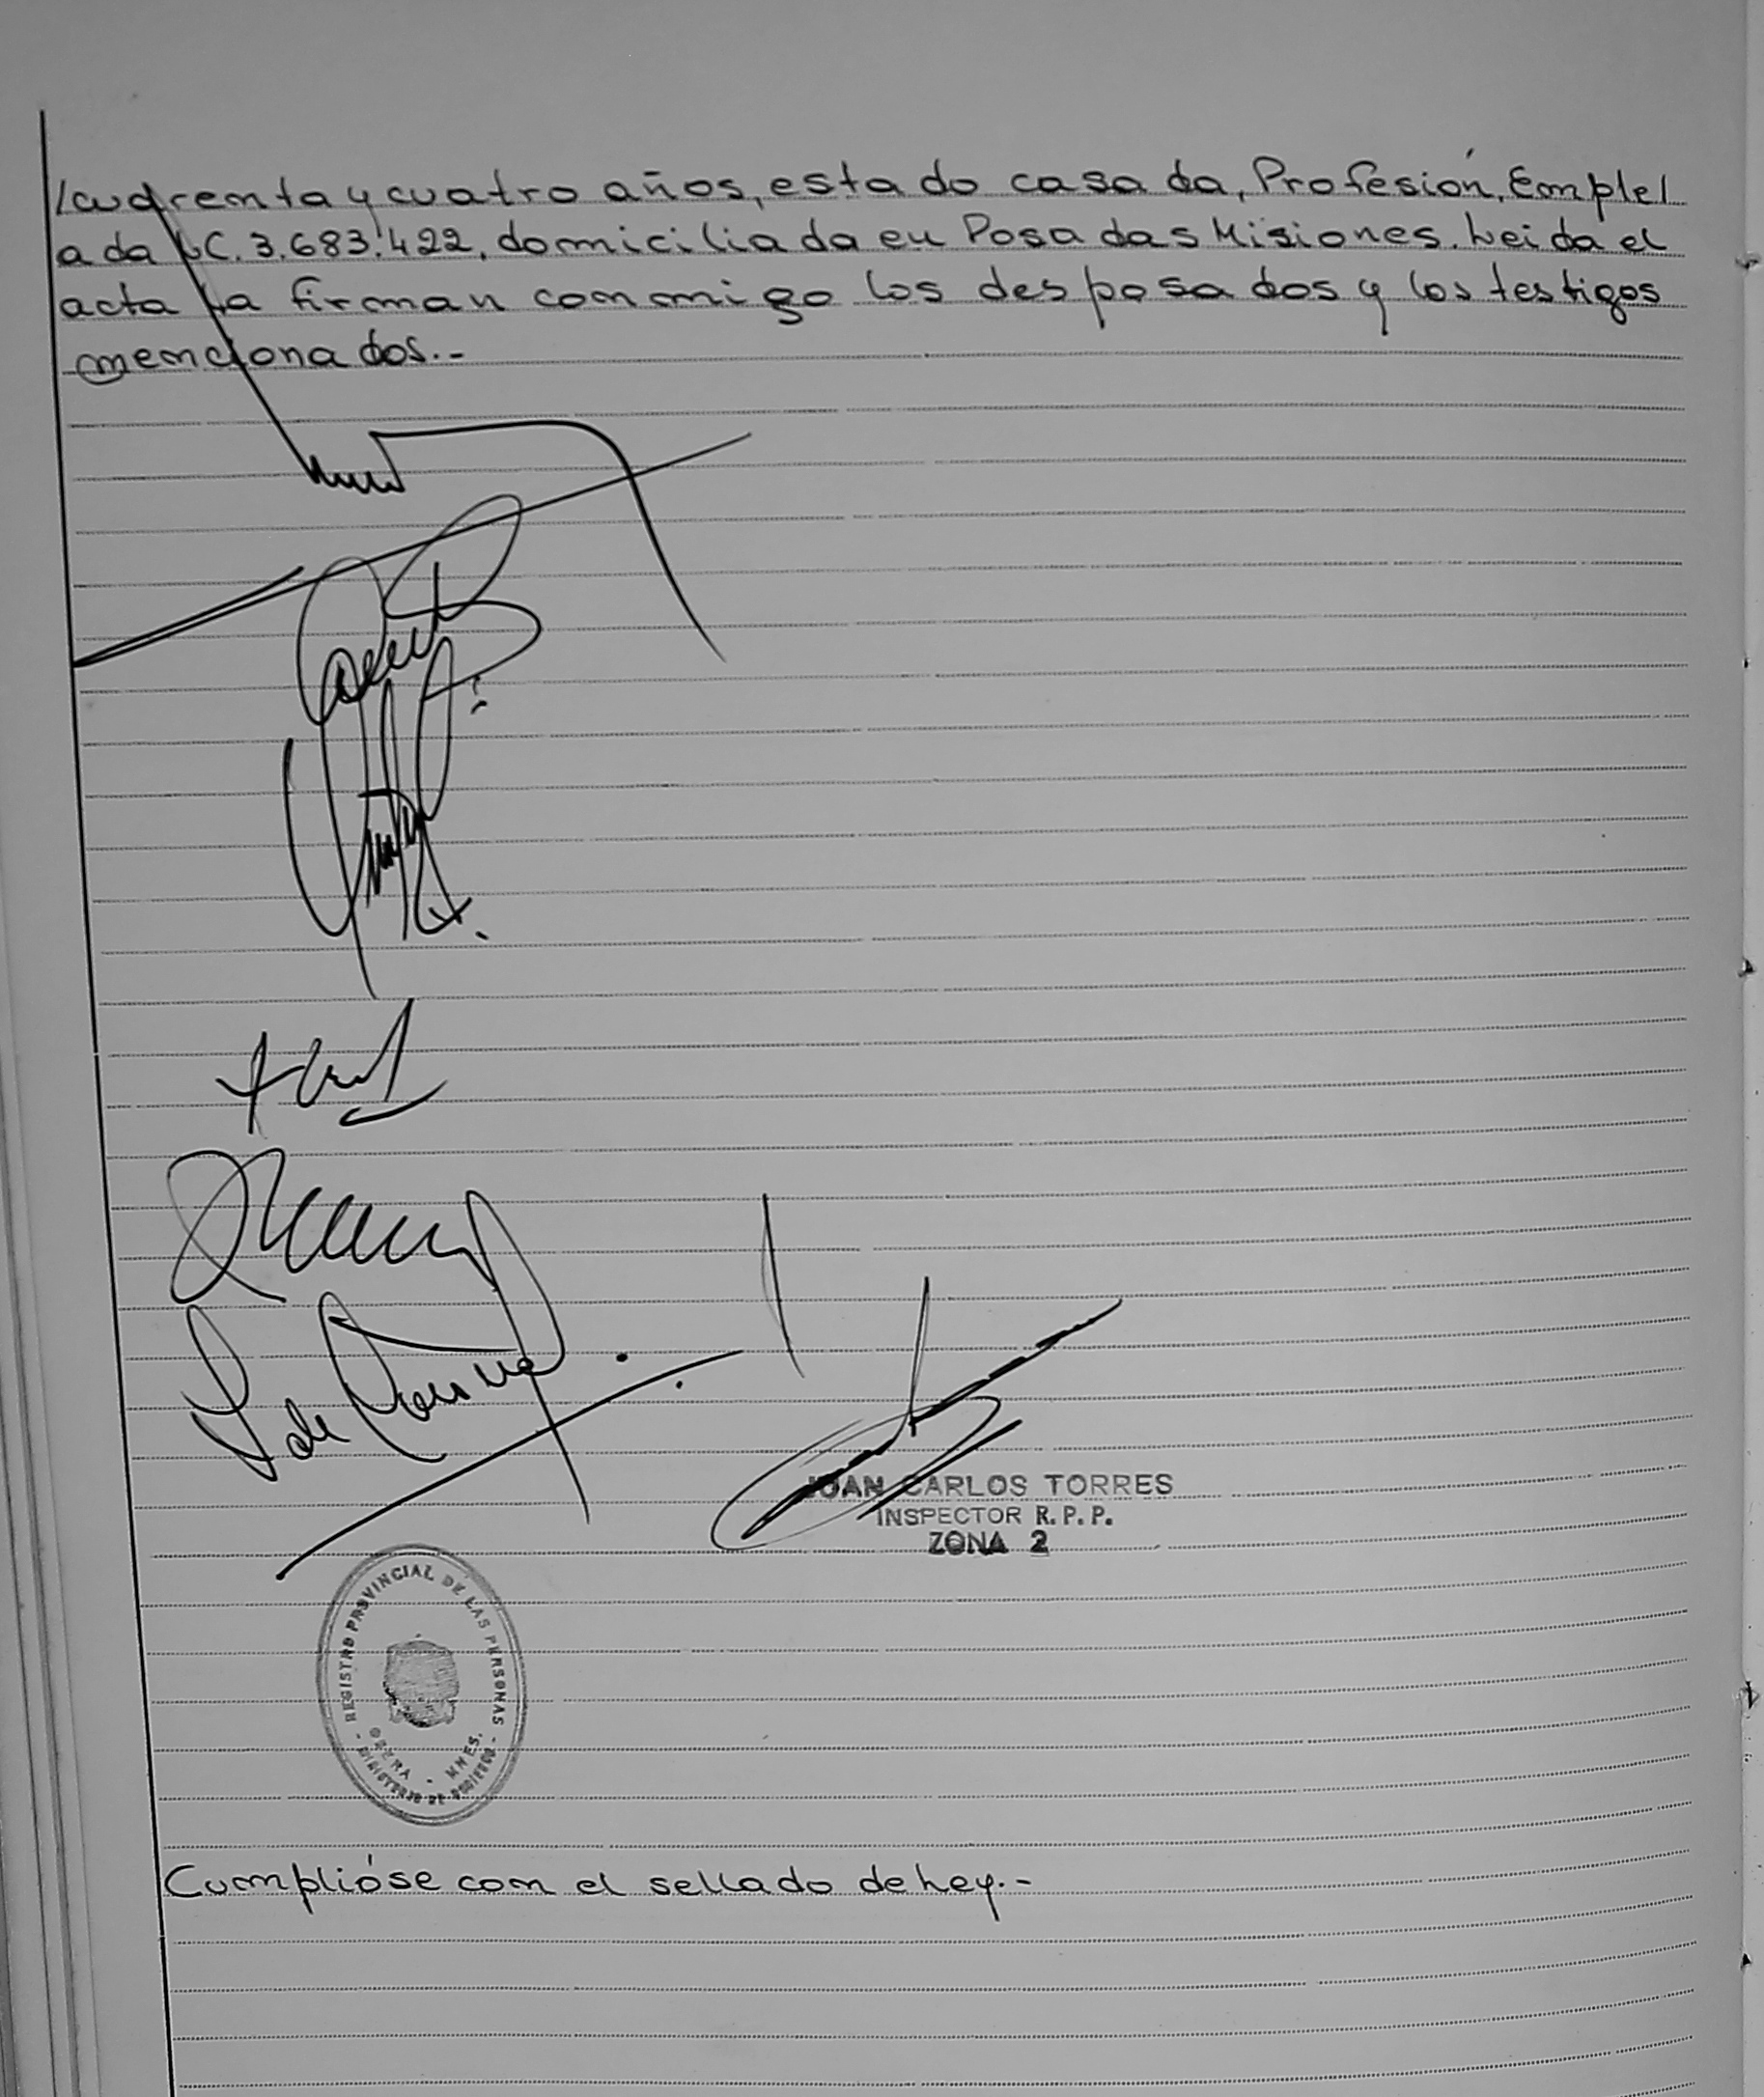 cuarenta y cuatro años, estado casada, Profesión, Emple/
ada LC. 3.683.422, domiciliada en Posadas Misiones. Leida el
acta la firman conmigo los desposados y los testigos
mencionados.-
JUAN CARLOS TORRES
INSPECTOR R. P. P.
ZONA 2
REGISTRO PROVINCIAL DE LAS PERSONAS
OBERA - MNES.
- MINISTERIO DE GOBIERNO -
Cumplióse con el sellado de Ley.-